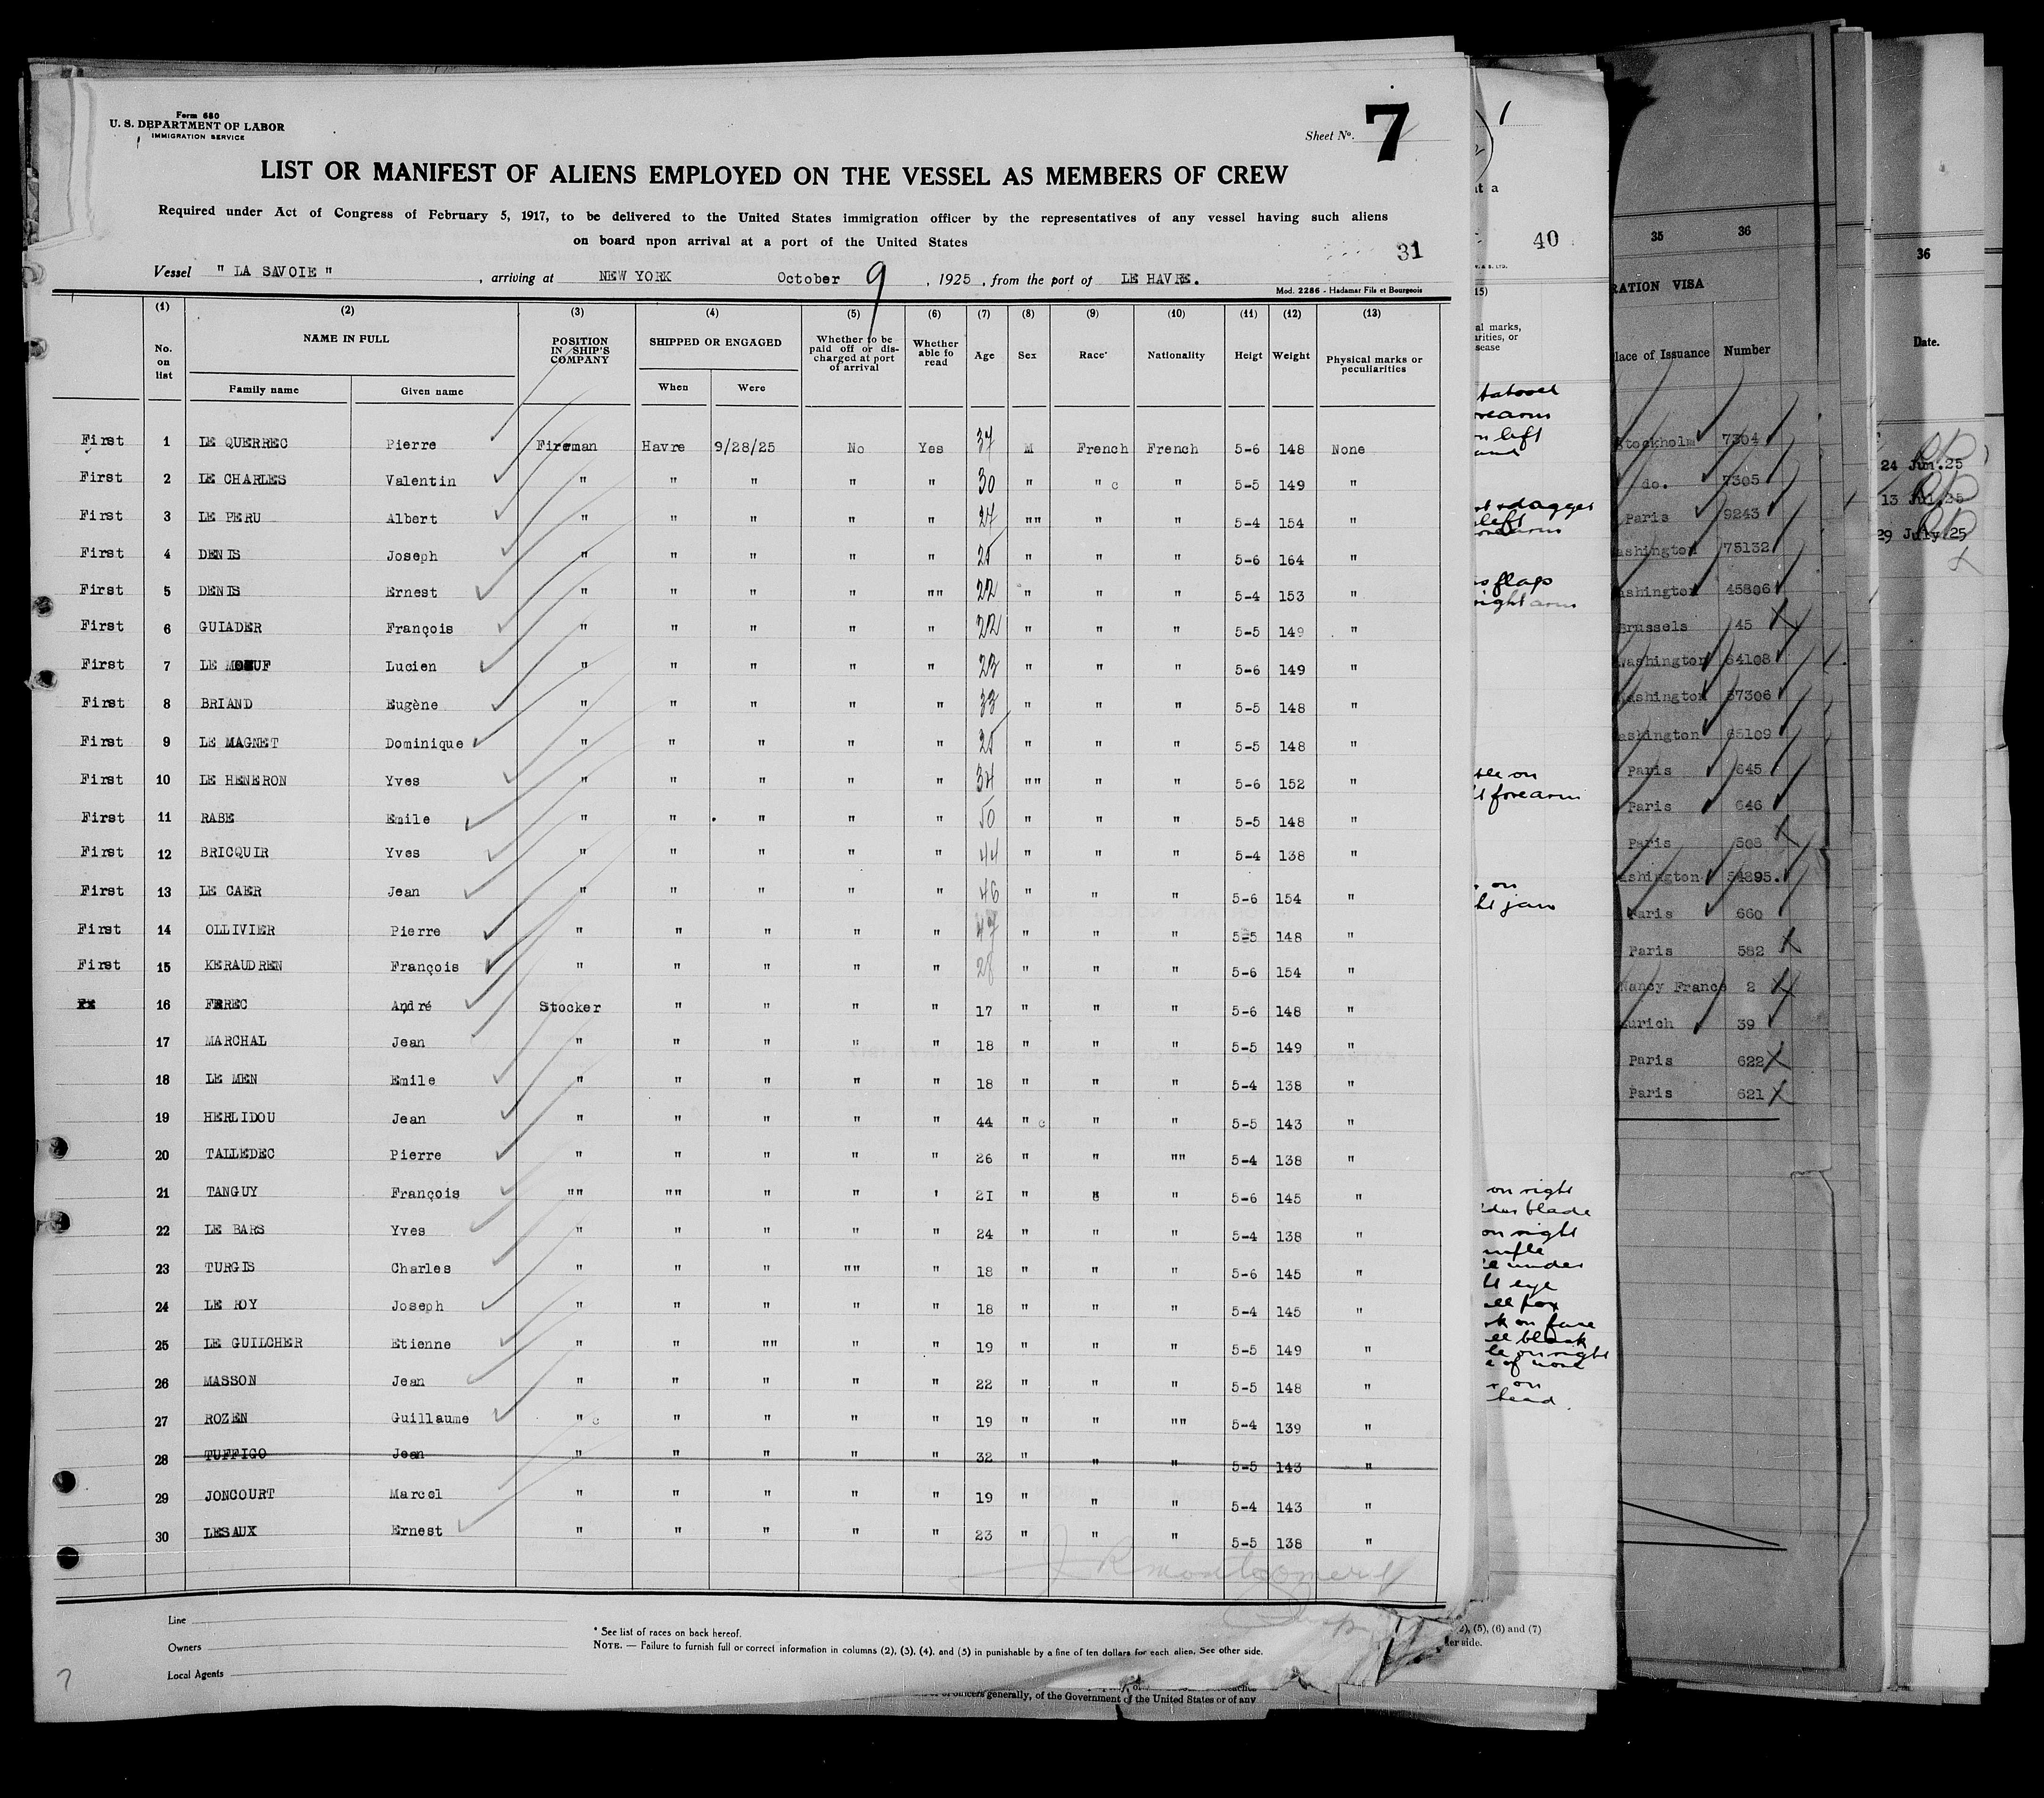 Form 680
U. S. DEPARTMENT OF LABOR
IMMIGRATION SERVICE
Sheet No. 7
LIST OR MANIFEST OF ALIENS EMPLOYED ON THE VESSEL AS MEMBERS OF CREW
Required under Act of Congress of February 5, 1917, to be delivered to the United States immigration officer by the representatives of any vessel having such aliens
on board npon arrival at a port of the United States
31
Vessel " LA SAVOIE " , arriving at NEW YORK October 9 , 1925 , from the port of LE HAVRE.
Mod. 2286 - Hadamar Fils et Bourgeois
(1) (2) (3) (4) (5) (6) (7) (8) (9) (10) (11) (12) (13)
No. on list NAME IN FULL POSITION IN SHIP'S COMPANY SHIPPED OR ENGAGED Whether to be paid off or discharged at port of arrival Whether able fo read Age Sex Race* Nationality Heigt Weight Physical marks or peculiarities
Family name Given name When Were
First 1 LE QUERREC Pierre Fireman Havre 9/28/25 No Yes 37 M French French 5-6 148 None
First 2 LE CHARLES Valentin " " " " " 30 " " c " 5-5 149 "
First 3 LE PERU Albert " " " " " 27 "" " " 5-4 154 "
First 4 DENIS Joseph " " " " " 25 " " " 5-6 164 "
First 5 DENIS Ernest " " " " "" 22 " " " 5-4 153 "
First 6 GUIADER François " " " " " 22 " " " 5-5 149 "
First 7 LE MOEUF Lucien " " " " " 23 " " " 5-6 149 "
First 8 BRIAND Eugène " " " " " 33 " " " 5-5 148 "
First 9 LE MAGNET Dominique " " " " " 25 " " " 5-5 148 "
First 10 LE HENERON Yves " " " " " 34 "" " " 5-6 152 "
First 11 RABE Emile " " " " " 50 " " " 5-5 148 "
First 12 BRICQUIR Yves " " " " " 44 " " " 5-4 138 "
First 13 LE CAER Jean " " " " " 46 " " " 5-6 154 "
First 14 OLLIVIER Pierre " " " " " 47 " " " 5-5 148 "
First 15 KERAUDREN François " " " " " 28 " " " 5-6 154 "
16 FEREC André Stocker " " " " 17 " " " 5-6 148 "
17 MARCHAL Jean " " " " " 18 " " " 5-5 149 "
18 LE MEN Emile " " " " " 18 " " " 5-4 138 "
19 HERLIDOU Jean " " " " " 44 " c " " 5-5 143 "
20 TALLEDEC Pierre " " " " " 26 " " "" 5-4 138 "
21 TANGUY François "" "" " " ' 21 " " " 5-6 145 "
22 LE BARS Yves " " " " " 24 " " " 5-4 138 "
23 TURGIS Charles " " " "" " 18 " " " 5-6 145 "
24 LE ROY Joseph " " " " " 18 " " " 5-4 145 "
25 LE GUILCHER Etienne " " "" " " 19 " " " 5-5 149 "
26 MASSON Jean " " " " " 22 " " " 5-5 148 "
27 ROZEN Guillaume " c " " " " 19 " " "" 5-4 139 "
28 TUFFIGO Jean " " " " " 32 " " " 5-5 143 "
29 JONCOURT Marcel " " " " " 19 " " " 5-4 143 "
30 LESAUX Ernest " " " " " 23 " " " 5-5 138 "
J R Montgomery
Insp
Line
Owners
Local Agents
* See list of races on back hereof.
NOTE. — Failure to furnish full or correct information in columns (2), (3), (4), and (5) in punishable by a fine of ten dollars for each alien. See other side.
officers generally, of the Government of the United States or of any
7
40
al marks,
arities, or
sease
left
flags
right arm
on
forearm
on
jaw
on right
blade
on right
under
eye
pox
on face
black
on right
of nose
on
head
(5), (6) and (7)
er side.
35 36
RATION VISA
lace of Issuance Number
Stockholm 7304
do. 7305
Paris 9243
ashington 75132
ashington 45806
Brussels 45
Washington 64108
ashington 57306
ashington 65109
Paris 645
Paris 646
Paris 508
ashington 54895.
Paris 660
Paris 582
Nancy France 2
urich 39
Paris 622
Paris 621
36
Date.
24 Jun.25
13 Jul.25
29 July.25